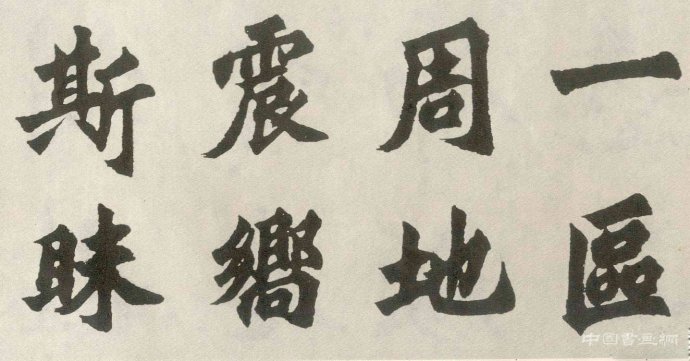 一區
周地
震嚮
斯昧
中国书画网